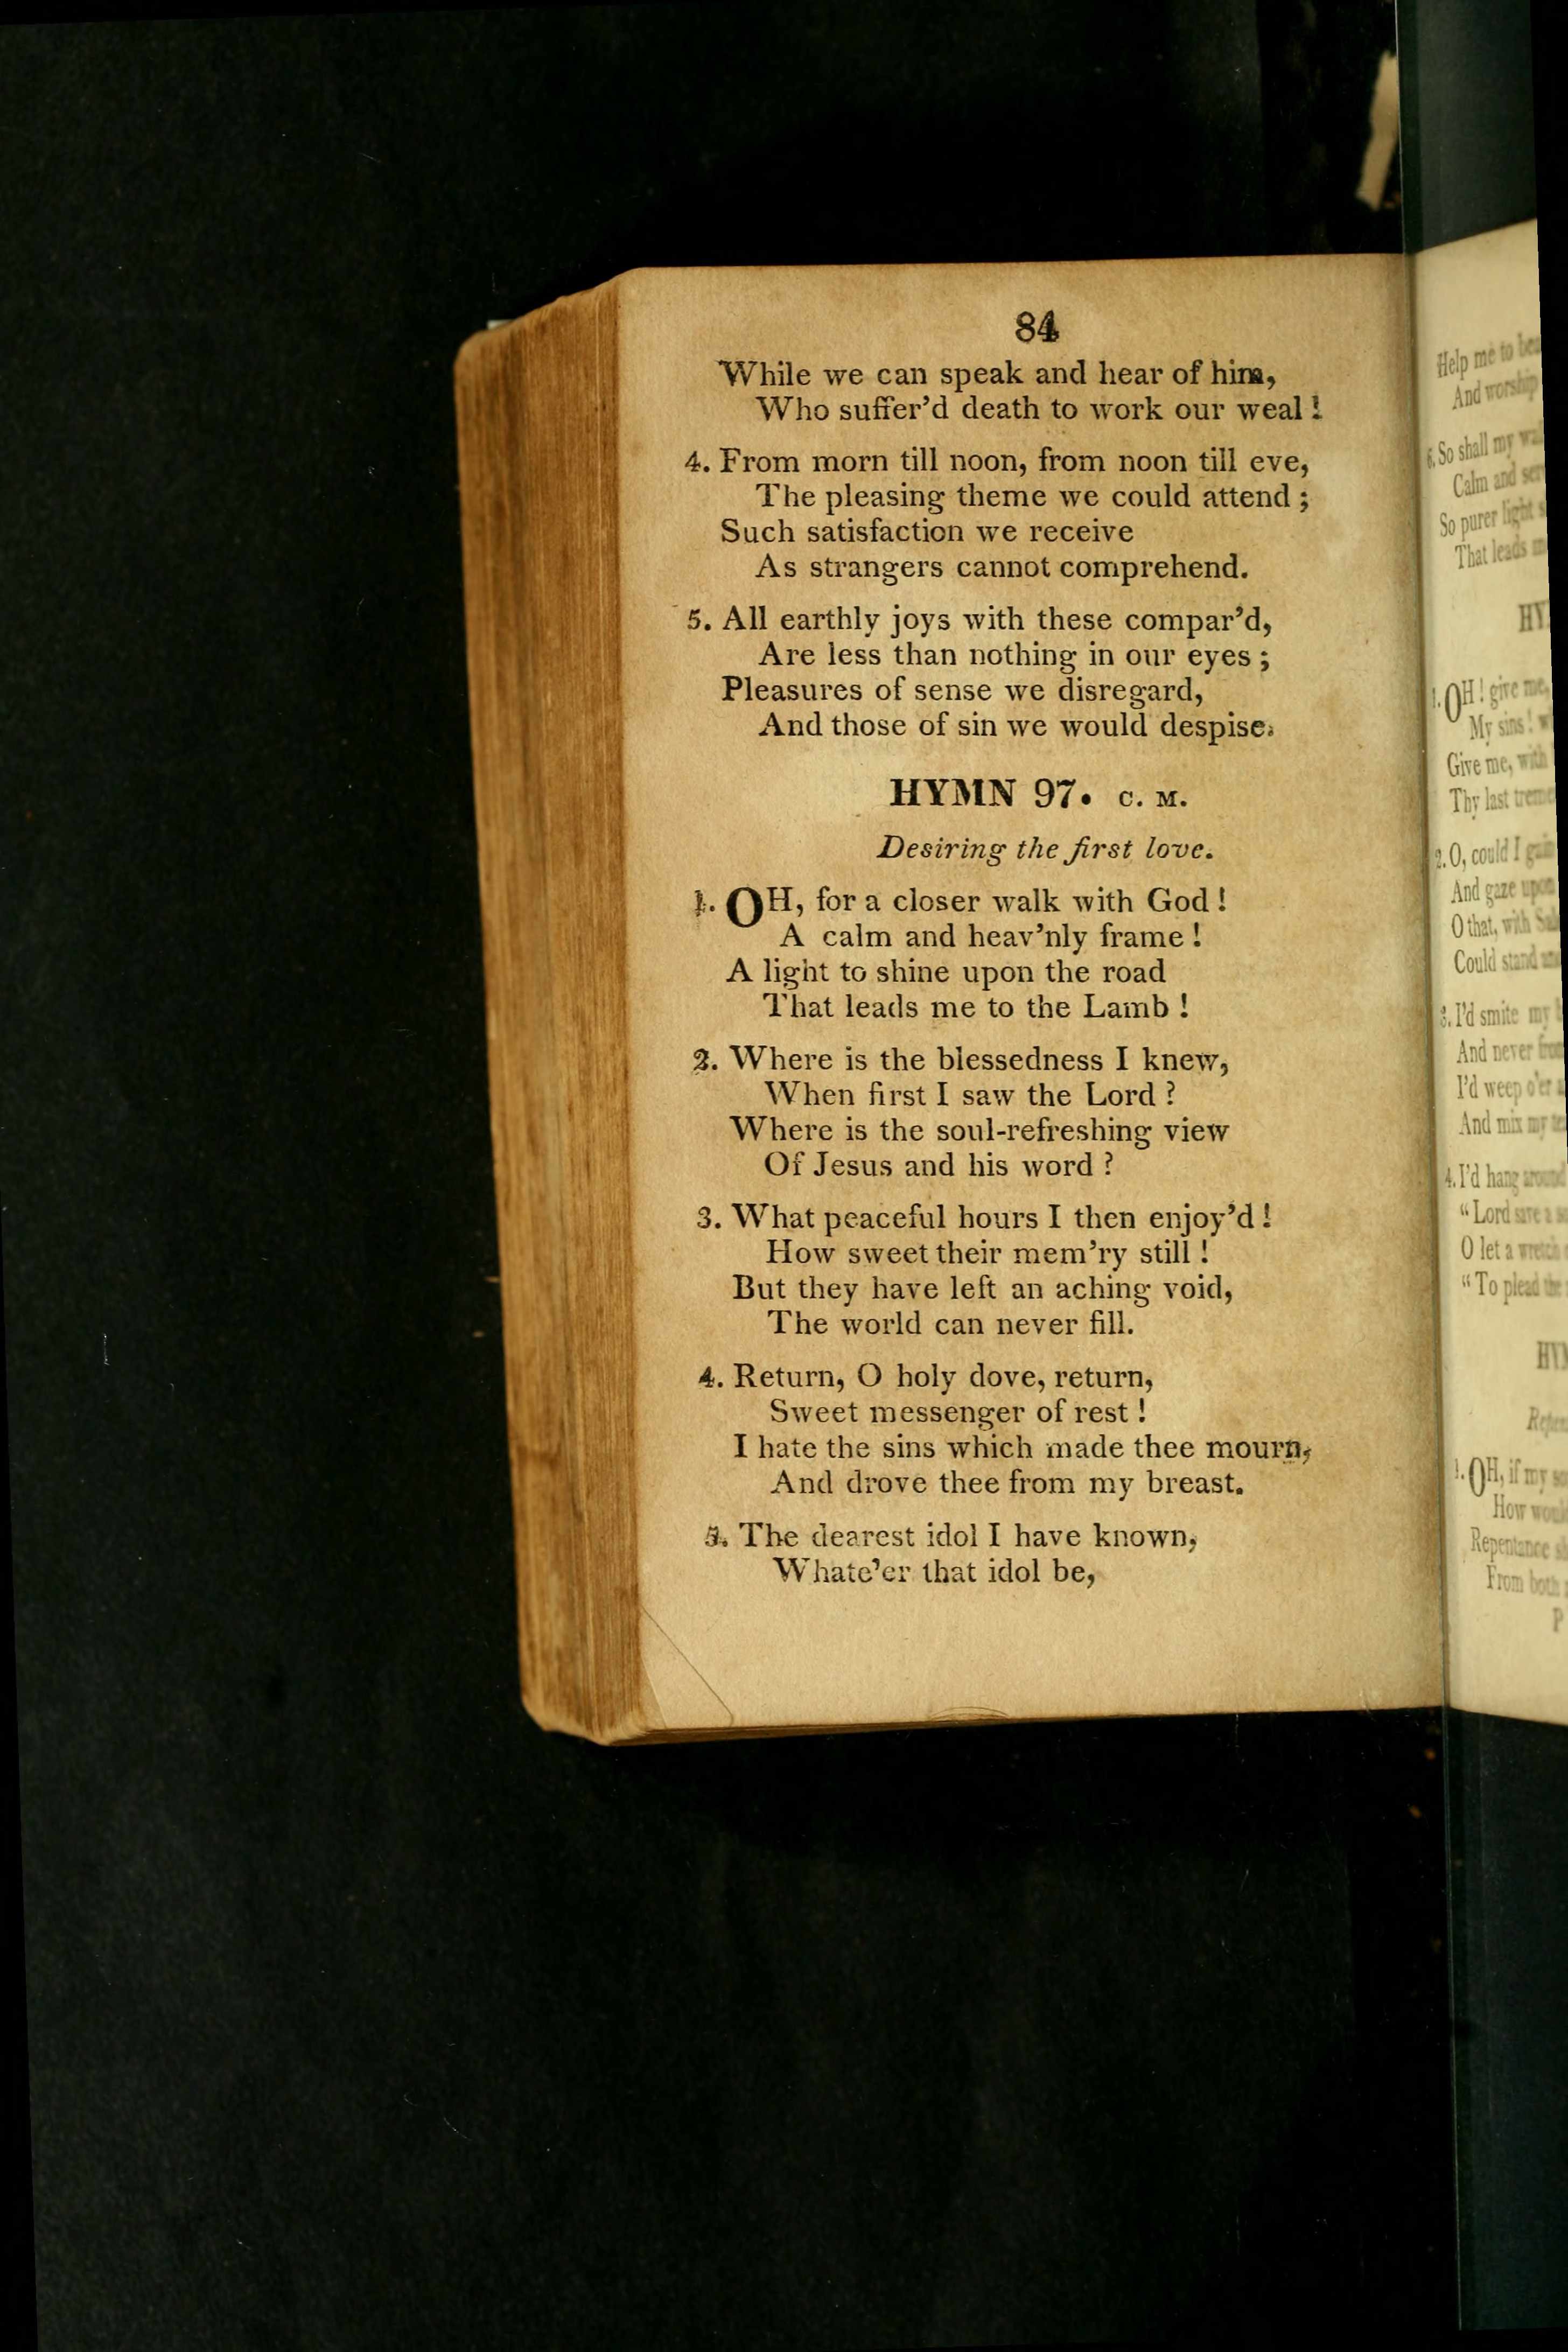 84
While we can speak and hear of him,
Who suffer'd death to work our weal !
4. From morn till noon, from noon till eve,
The pleasing theme we could attend ;
Such satisfaction we receive
As strangers cannot comprehend.
5. All earthly joys with these compar'd,
Are less than nothing in our eyes ;
Pleasures of sense we disregard,
And those of sin we would despise.
HYMN 97. C. M.
Desiring the first love.
1. OH, for a closer walk with God !
A calm and heav'nly frame !
A light to shine upon the road
That leads me to the Lamb !
2. Where is the blessedness I knew,
When first I saw the Lord ?
Where is the soul-refreshing view
Of Jesus and his word ?
3. What peaceful hours I then enjoy'd !
How sweet their mem'ry still !
But they have left an aching void,
The world can never fill.
4. Return, O holy dove, return,
Sweet messenger of rest !
I hate the sins which made thee mourn,
And drove thee from my breast.
5. The dearest idol I have known,
Whate'er that idol be,
Help me to
And worship
So shall my
Calm and
So purer light
That leads
1. OH ! give me,
My sins !
Give me, with
Thy last
2. O, could I
And gaze upon
O that, with
Could stand
3. I'd smite my
And never
I'd weep o'er
And mix my
4. I'd hang around
"Lord save a
O let a wretch
"To plead the
1. OH, if my
How
Repentance
From both
P